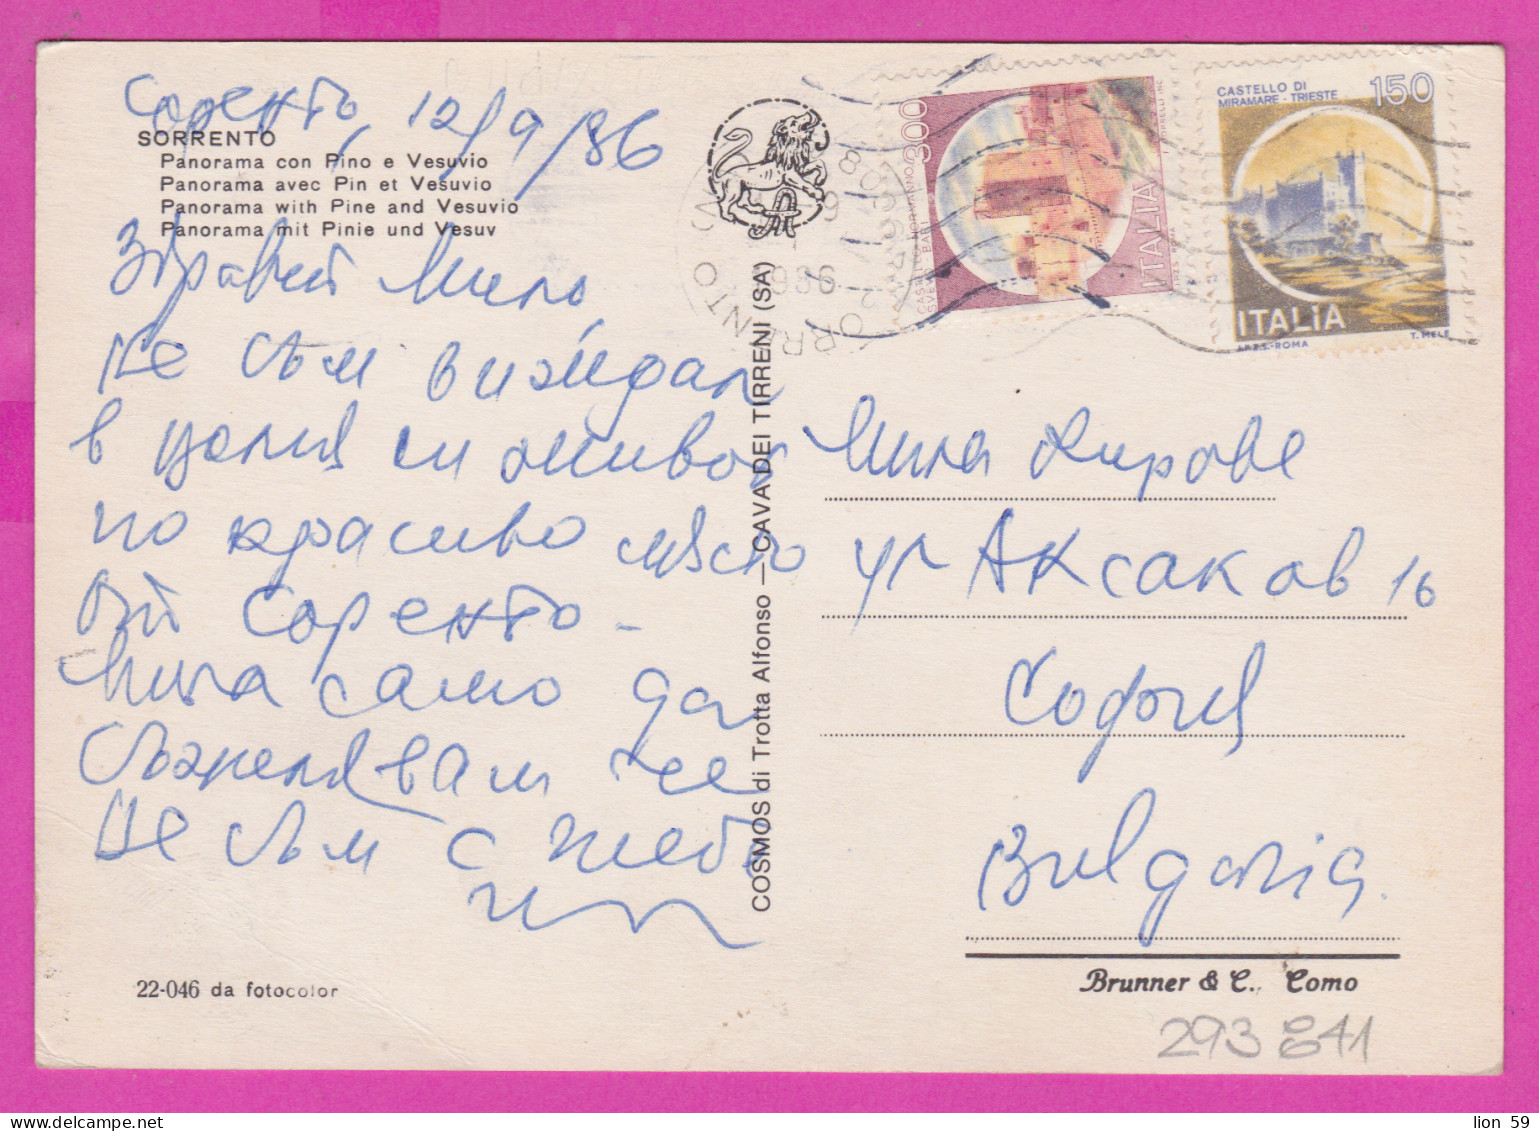 Соренто, 12/9/86
SORRENTO
Panorama con Pino e Vesuvio
Panorama avec Pin et Vesuvio
Panorama with Pine and Vesuvio
Panorama mit Pinie und Vesuv
Здравей Мила,
Не съм виждал
в целия си живот
по красиво място
от Соренто -
Мила само да
съжелявам че
не съм с теб
22-046 da fotocolor
COSMOS di Trotta Alfonso — CAVA DEI TIRRENI (SA)
1986
300
ITALIA
CASTELLO DI
MIRAMARE - TRIESTE
150
ITALIA
I.P.Z.S.-ROMA
T. MELE
Мила Кирова
ул Аксаков 16
София
Bulgaria.
Brunner & C., Como
293841
lion 59